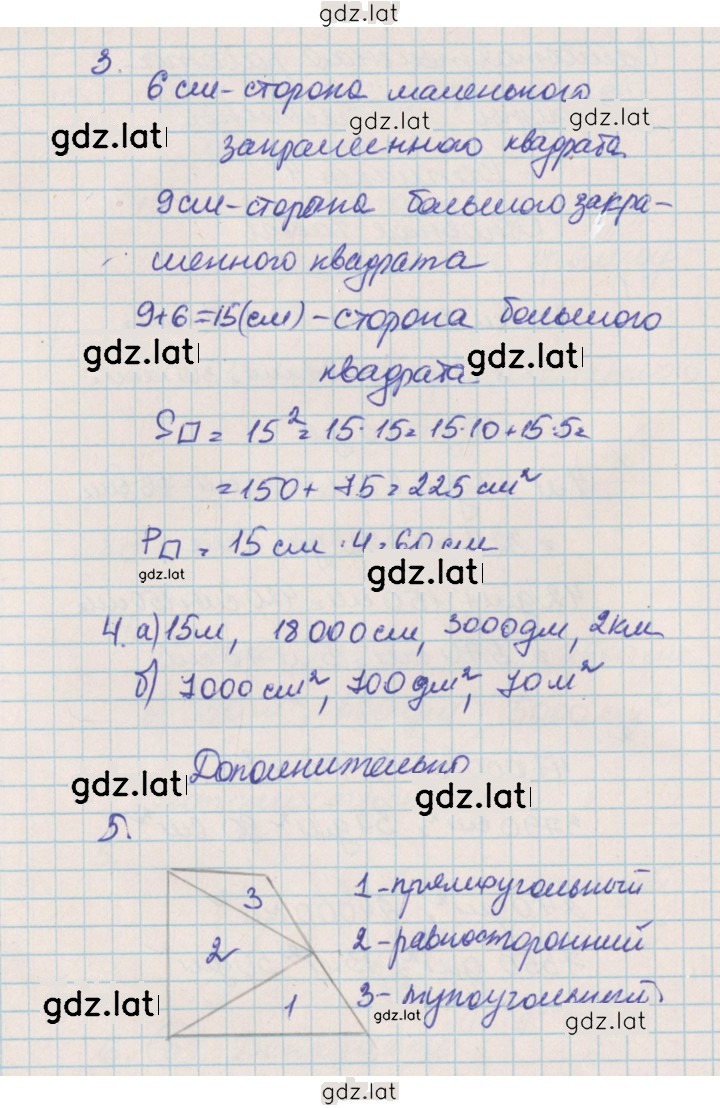 gdz.lat
3.
6 см - сторона маленького
gdz.lat gdz.lat gdz.lat
закрашенного квадрата
9 см - сторона большого закра-
шенного квадрата
9+6=15(см) - сторона большого
gdz.lat gdz.lat
квадрата
S□ = 15² = 15·15 = 15·10+15·5=
=150+75=225 см²
P□ = 15 см · 4 = 60 см
gdz.lat gdz.lat
4. а) 15 м, 18 000 см, 3000 дм, 2 км
б) 7000 см², 700 дм², 70 м²
Дополнительно
gdz.lat gdz.lat
5.
3 1 - прямоугольный
2 2 - равносторонний
1 3 - тупоугольный
gdz.lat gdz.lat gdz.lat
gdz.lat